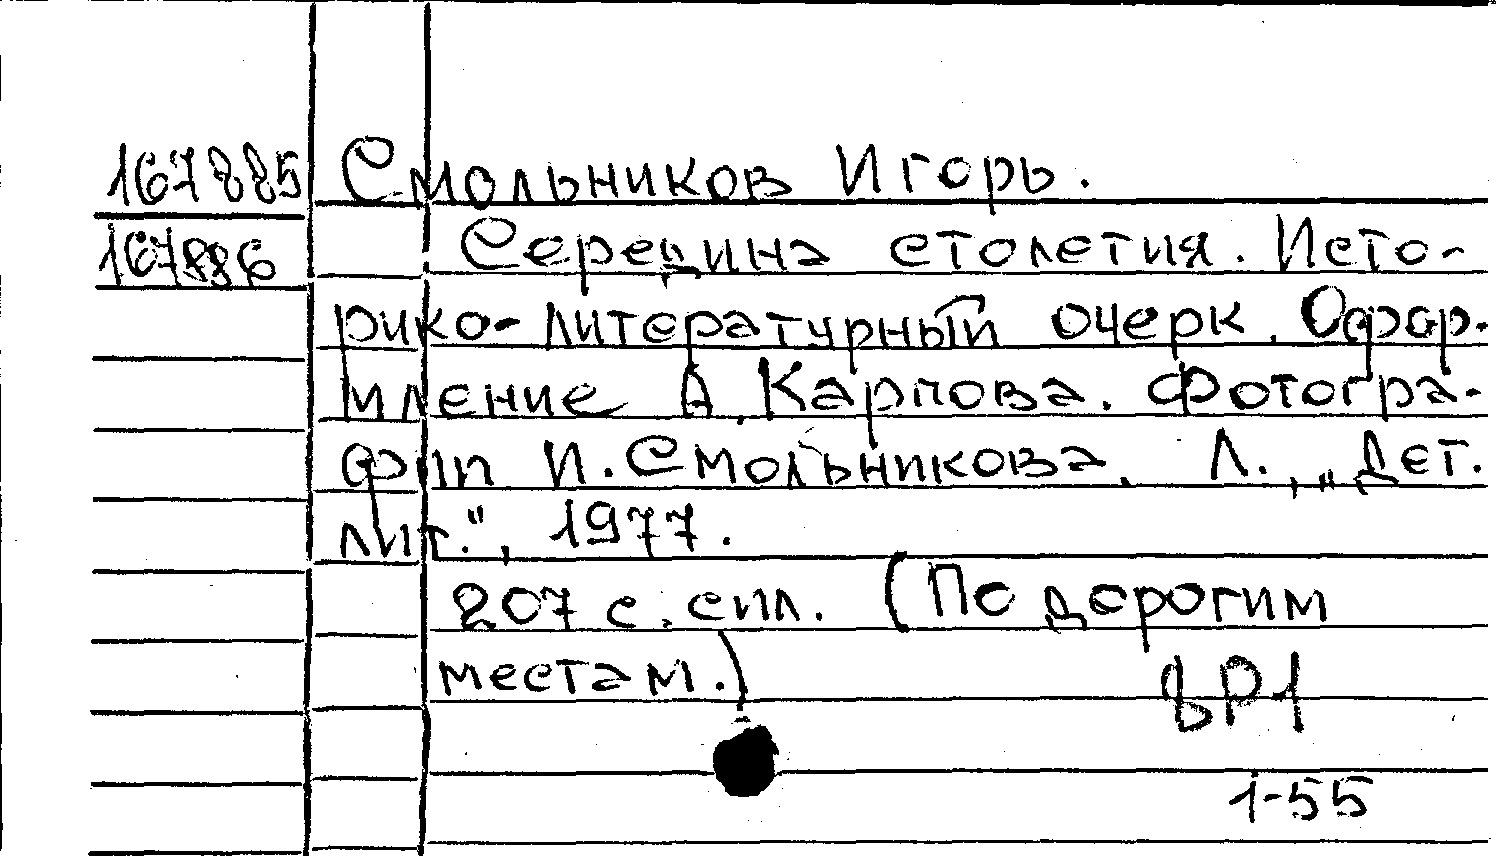 167885 Смольников Игорь.
167886 Середина столетия. Исто-
рико-литературный очерк. Офор-
мление А.Карпова. Фотогра-
фии И.Смольникова. Л., „Дет.
лит.", 1977.
207 с. с ил. (По дорогим
местам.)
8Р1
1-55